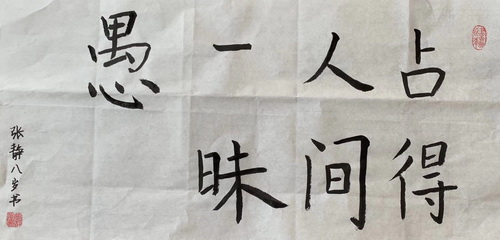 占得
人间
一昧
愚
张静八岁书